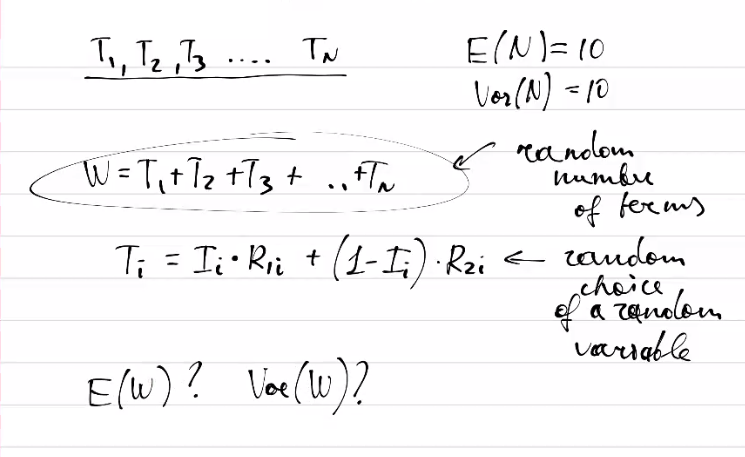 T₁, T₂, T₃ .... T_N E(N) = 10
Var(N) = 10
W = T₁ + T₂ + T₃ + ... + T_N random
number
of terms
T_i = I_i · R_{1i} + (1 - I_i) · R_{2i} ← random
choice
of a random
variable
E(W)? Var(W)?